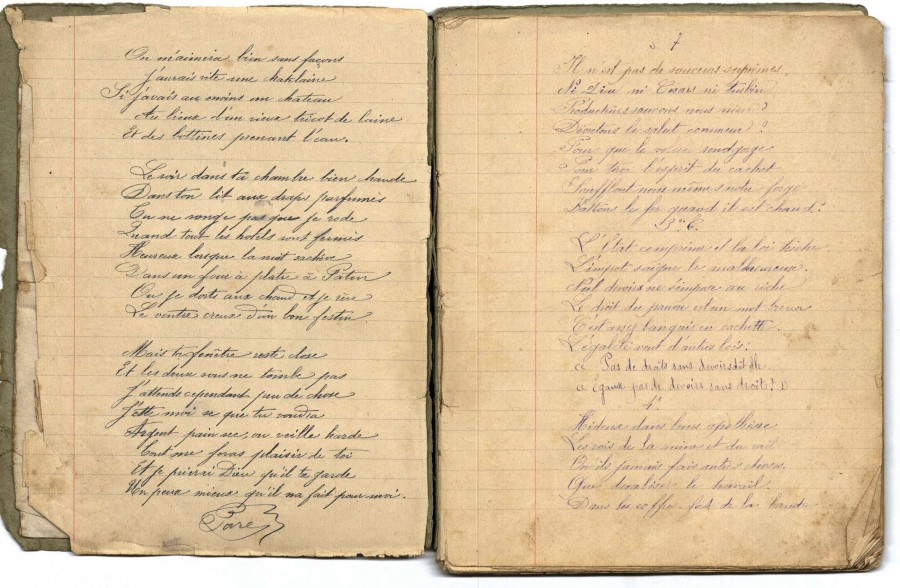 On m'aimera bien sans façons
J'aurais vite une chatelaine
Si j'avais au moins un chateau
Au lieux d'un vieux tricot de laine
Et des bottines prenant l'eau.
Le soir dans ta chambre bien chaude
Dans ton lit aux draps parfumés
Tu ne songe pas que je rode
Quand tout les hotels sont fermés
Heureux lorsque la nuit
Dans un four à platre à Patin
Ou je dors au chaud et je rêve
Le ventre creux d'un bon festin
Mais ta fenêtre reste close
Et les deux sous ne tombe pas
J'attends cependant peu de chose
Jette moi se que tu voudra
Argent pain sec, ou vieille harde
Tout me feras plaisir de toi
Et je prierai Dieu qu'il te garde
Un peux mieux qu'il m'a fait pour moi.
7
Il n'est pas de sauveurs suprêmes,
Ni Dieu ni Cesars ni Tribun
Producteurs sauvons nous
Décretons le salut commun?
Pour que le voleur rend gorge
Pour tirer l'esprit du cachot
Soufflont nous mêmes notre forge
Battons le fer quand il est chaud?
3e C.
L'Etat comprime et la loi triche
L'impot saigne le malheureux.
Nul devoir ne s'impose au riche
Le droit du pauvre est un mot creux
C'est assez languir en
L'égalité veut d'autres lois:
« Pas de droits sans devoirs dit elle
« Egaux pas de devoirs sans droits? »
4e
Hideux dans leurs apothéose
Les rois de la mine et du rail
On ils jamais fais autres choses.
Que devaliser le travail.
Dans les coffres-fort de la bande